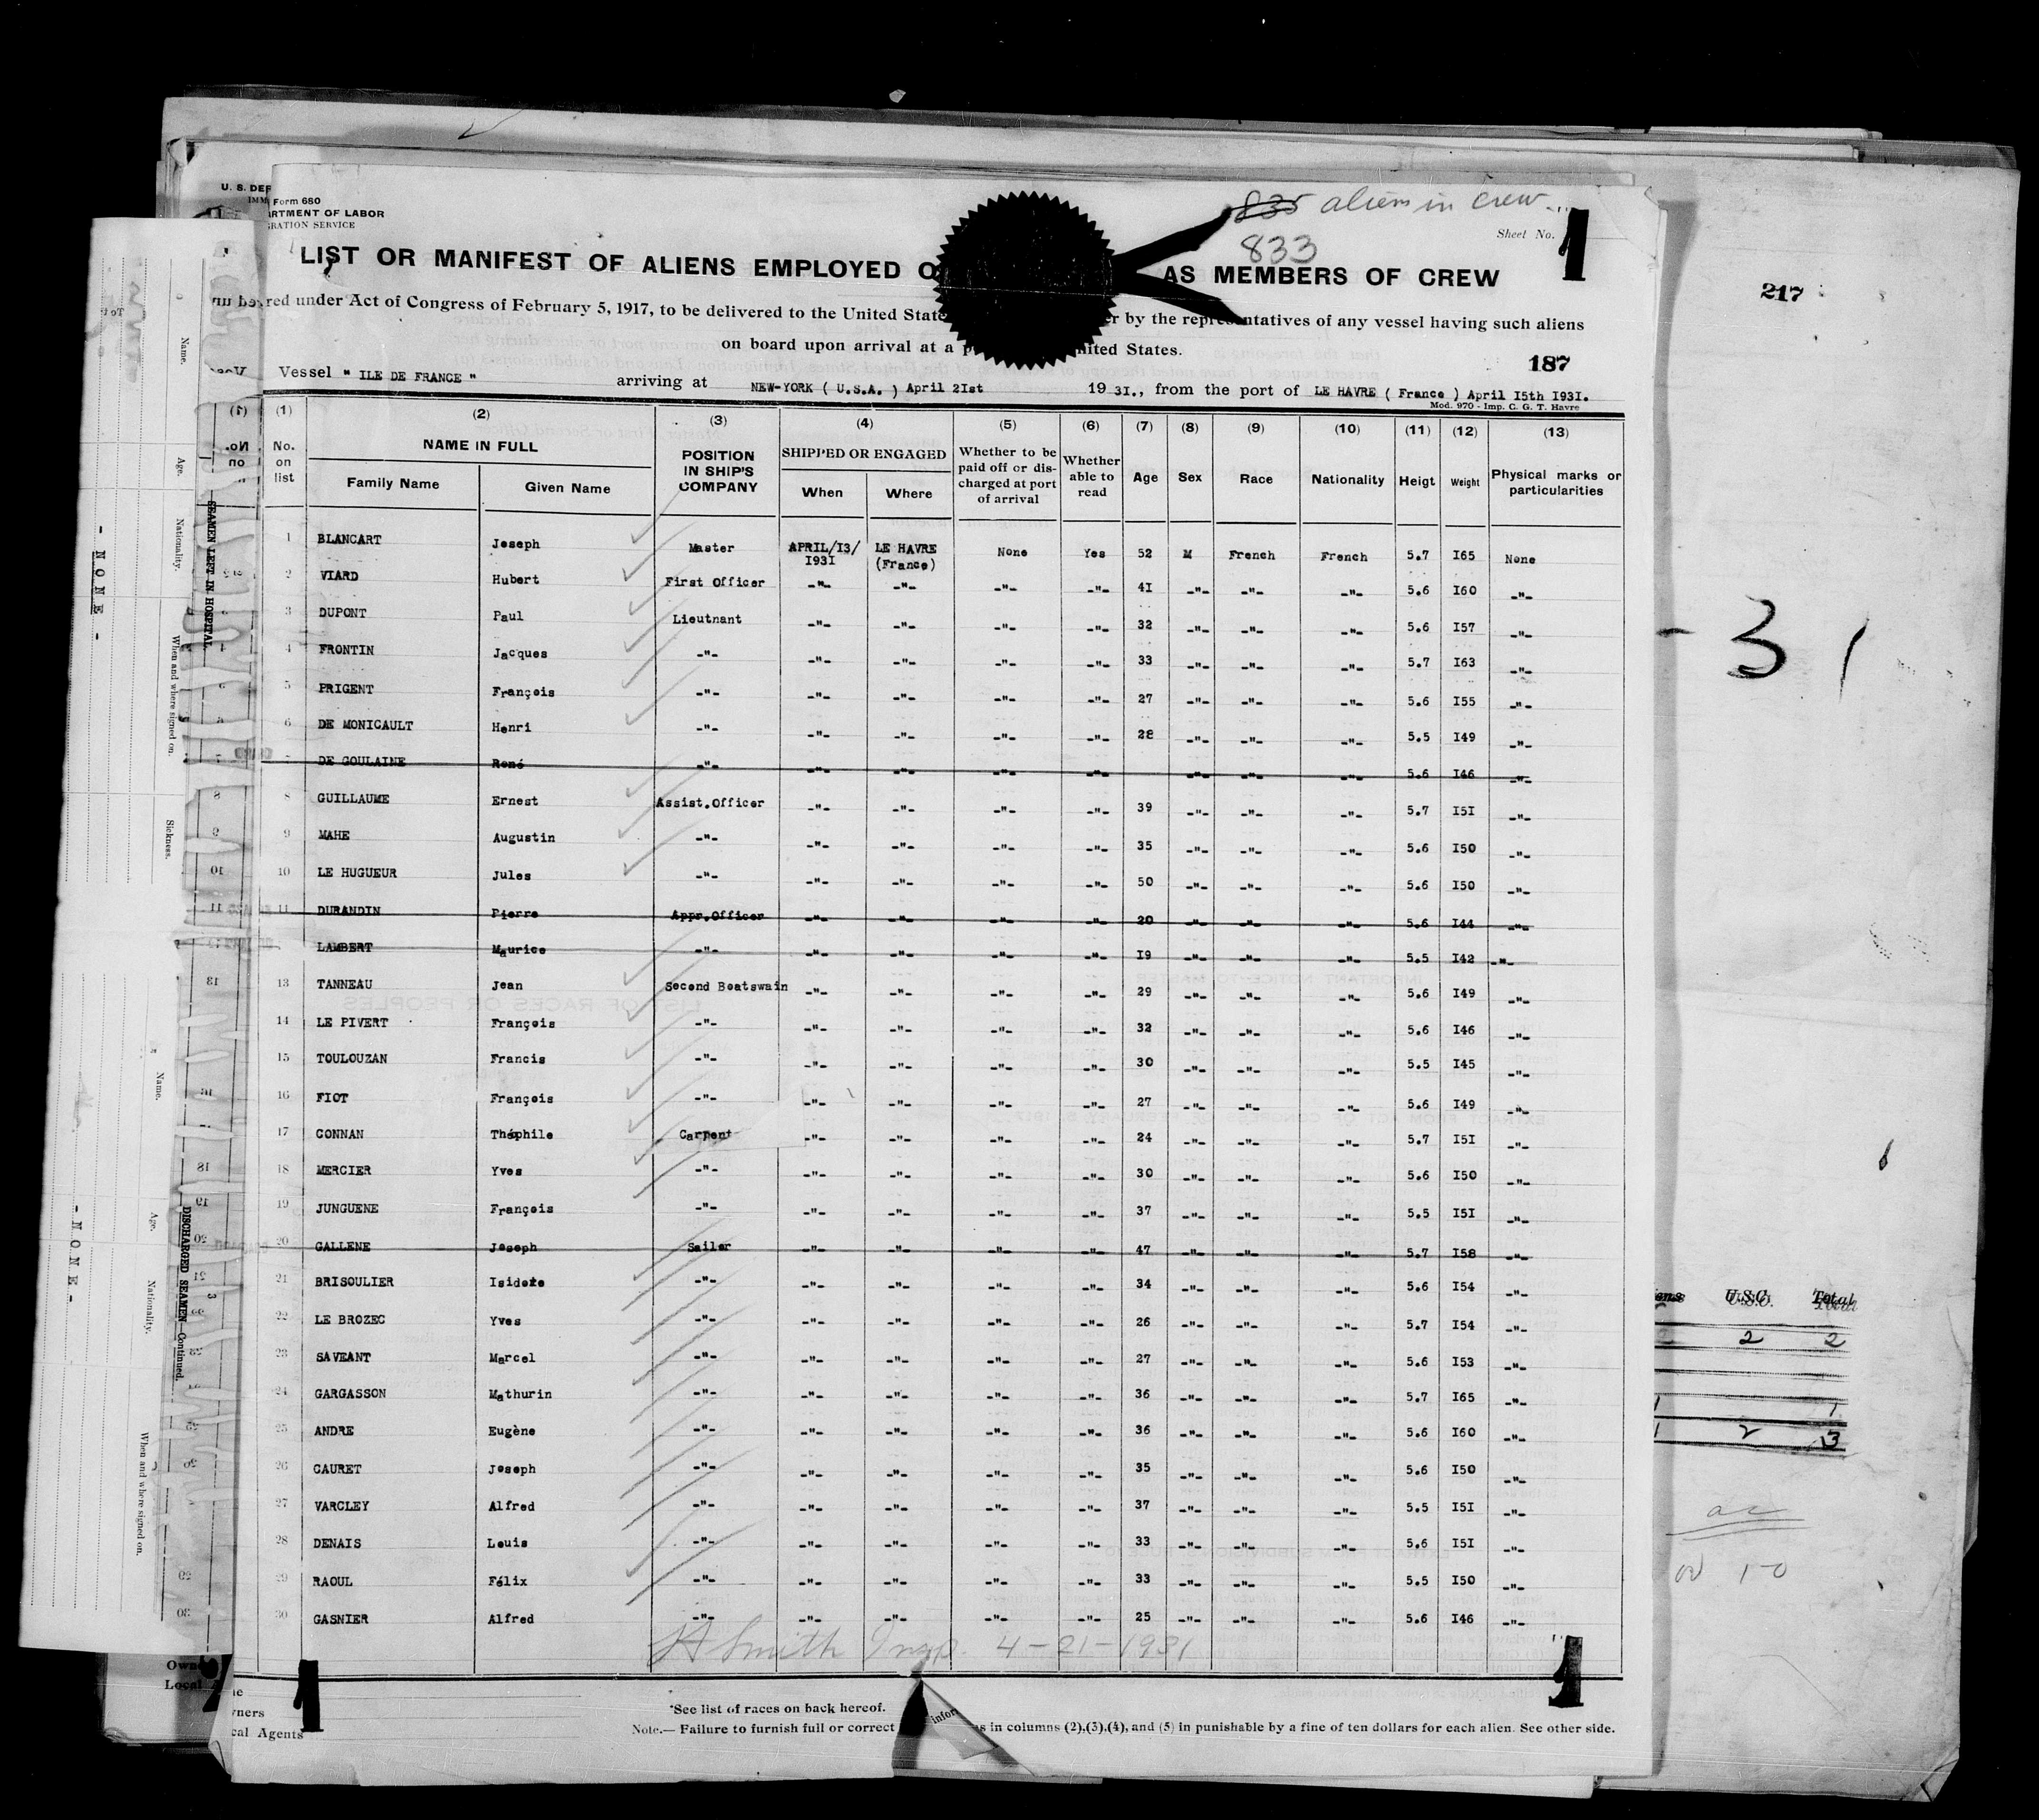 835 aliens in crew
833
Form 680
U. S. DEPARTMENT OF LABOR
IMMIGRATION SERVICE
Sheet No. 1
LIST OR MANIFEST OF ALIENS EMPLOYED O AS MEMBERS OF CREW
red under Act of Congress of February 5, 1917, to be delivered to the United State r by the representatives of any vessel having such aliens
on board upon arrival at a p nited States.
187
217
Vessel " ILE DE FRANCE " arriving at NEW-YORK ( U.S.A. ) April 2Ist 19 3I., from the port of LE HAVRE ( France ) April I5th I93I.
Mod. 970 - Imp. C. G. T. Havre
(1) (2) (3) (4) (5) (6) (7) (8) (9) (10) (11) (12) (13)
No. on list NAME IN FULL Family Name Given Name POSITION IN SHIP'S COMPANY SHIPPED OR ENGAGED When Where Whether to be paid off or discharged at port of arrival Whether able to read Age Sex Race Nationality Heigt Weight Physical marks or particularities
1 BLANCART Joseph Master APRIL/I3/I93I LE HAVRE (France) None Yes 52 M French French 5.7 I65 None
2 VIARD Hubert First Officer -"- -"- -"- -"- 4I -"- -"- -"- 5.6 I60 -"-
3 DUPONT Paul Lieutnant -"- -"- -"- -"- 32 -"- -"- -"- 5.6 I57 -"-
4 FRONTIN Jacques -"- -"- -"- -"- -"- 33 -"- -"- -"- 5.7 I63 -"-
5 PRIGENT François -"- -"- -"- -"- -"- 27 -"- -"- -"- 5.6 I55 -"-
6 DE MONICAULT Henri -"- -"- -"- -"- -"- 28 -"- -"- -"- 5.5 I49 -"-
7 DE GOULAINE René -"- -"- -"- -"- -"- -"- -"- -"- 5.6 I46 -"-
8 GUILLAUME Ernest Assist.Officer -"- -"- -"- -"- 39 -"- -"- -"- 5.7 I5I -"-
9 MAHE Augustin -"- -"- -"- -"- -"- 35 -"- -"- -"- 5.6 I50 -"-
10 LE HUGUEUR Jules -"- -"- -"- -"- -"- 50 -"- -"- -"- 5.6 I50 -"-
11 DURANDIN Pierre Appr.Officer -"- -"- -"- -"- 20 -"- -"- -"- 5.6 I44 -"-
LAMBERT Maurice -"- -"- -"- -"- -"- I9 -"- -"- -"- 5.5 I42 -"-
13 TANNEAU Jean Second Boatswain -"- -"- -"- -"- 29 -"- -"- -"- 5.6 I49 -"-
14 LE PIVERT François -"- -"- -"- -"- -"- 32 -"- -"- -"- 5.6 I46 -"-
15 TOULOUZAN Francis -"- -"- -"- -"- -"- 30 -"- -"- -"- 5.5 I45 -"-
16 FIOT François -"- -"- -"- -"- -"- 27 -"- -"- -"- 5.6 I49 -"-
17 CONNAN Théphile Carpent -"- -"- -"- -"- 24 -"- -"- -"- 5.7 I5I -"-
18 MERCIER Yves -"- -"- -"- -"- -"- 30 -"- -"- -"- 5.6 I50 -"-
19 JUNGUENE François -"- -"- -"- -"- -"- 37 -"- -"- -"- 5.5 I5I -"-
20 GALLENE Joseph Sailor -"- -"- -"- -"- 47 -"- -"- -"- 5.7 I58 -"-
21 BRISOULIER Isidore -"- -"- -"- -"- -"- 34 -"- -"- -"- 5.6 I54 -"-
22 LE BROZEC Yves -"- -"- -"- -"- -"- 26 -"- -"- -"- 5.7 I54 -"-
23 SAVEANT Marcel -"- -"- -"- -"- -"- 27 -"- -"- -"- 5.6 I53 -"-
24 GARGASSON Mathurin -"- -"- -"- -"- -"- 36 -"- -"- -"- 5.7 I65 -"-
25 ANDRE Eugène -"- -"- -"- -"- -"- 36 -"- -"- -"- 5.6 I60 -"-
26 CAURET Joseph -"- -"- -"- -"- -"- 35 -"- -"- -"- 5.6 I50 -"-
27 VARCLEY Alfred -"- -"- -"- -"- -"- 37 -"- -"- -"- 5.5 I5I -"-
28 DENAIS Louis -"- -"- -"- -"- -"- 33 -"- -"- -"- 5.6 I5I -"-
29 RAOUL Félix -"- -"- -"- -"- -"- 33 -"- -"- -"- 5.5 I50 -"-
30 GASNIER Alfred -"- -"- -"- -"- -"- 25 -"- -"- -"- 5.6 I46 -"-
Smith Insp. 4-21-1931
1 1
*See list of races on back hereof.
Note.— Failure to furnish full or correct infor s in columns (2),(3),(4), and (5) in punishable by a fine of ten dollars for each alien. See other side.
ners
cal Agents
- 31
U.S.C. Total
2 2
1
1 2 3
SEAMEN LEFT IN HOSPITAL.
Name. Age. Nationality. When and where signed on. Sickness.
- N O N E -
DISCHARGED SEAMEN—Continued.
Name. Age. Nationality. When and where signed on.
- N O N E -